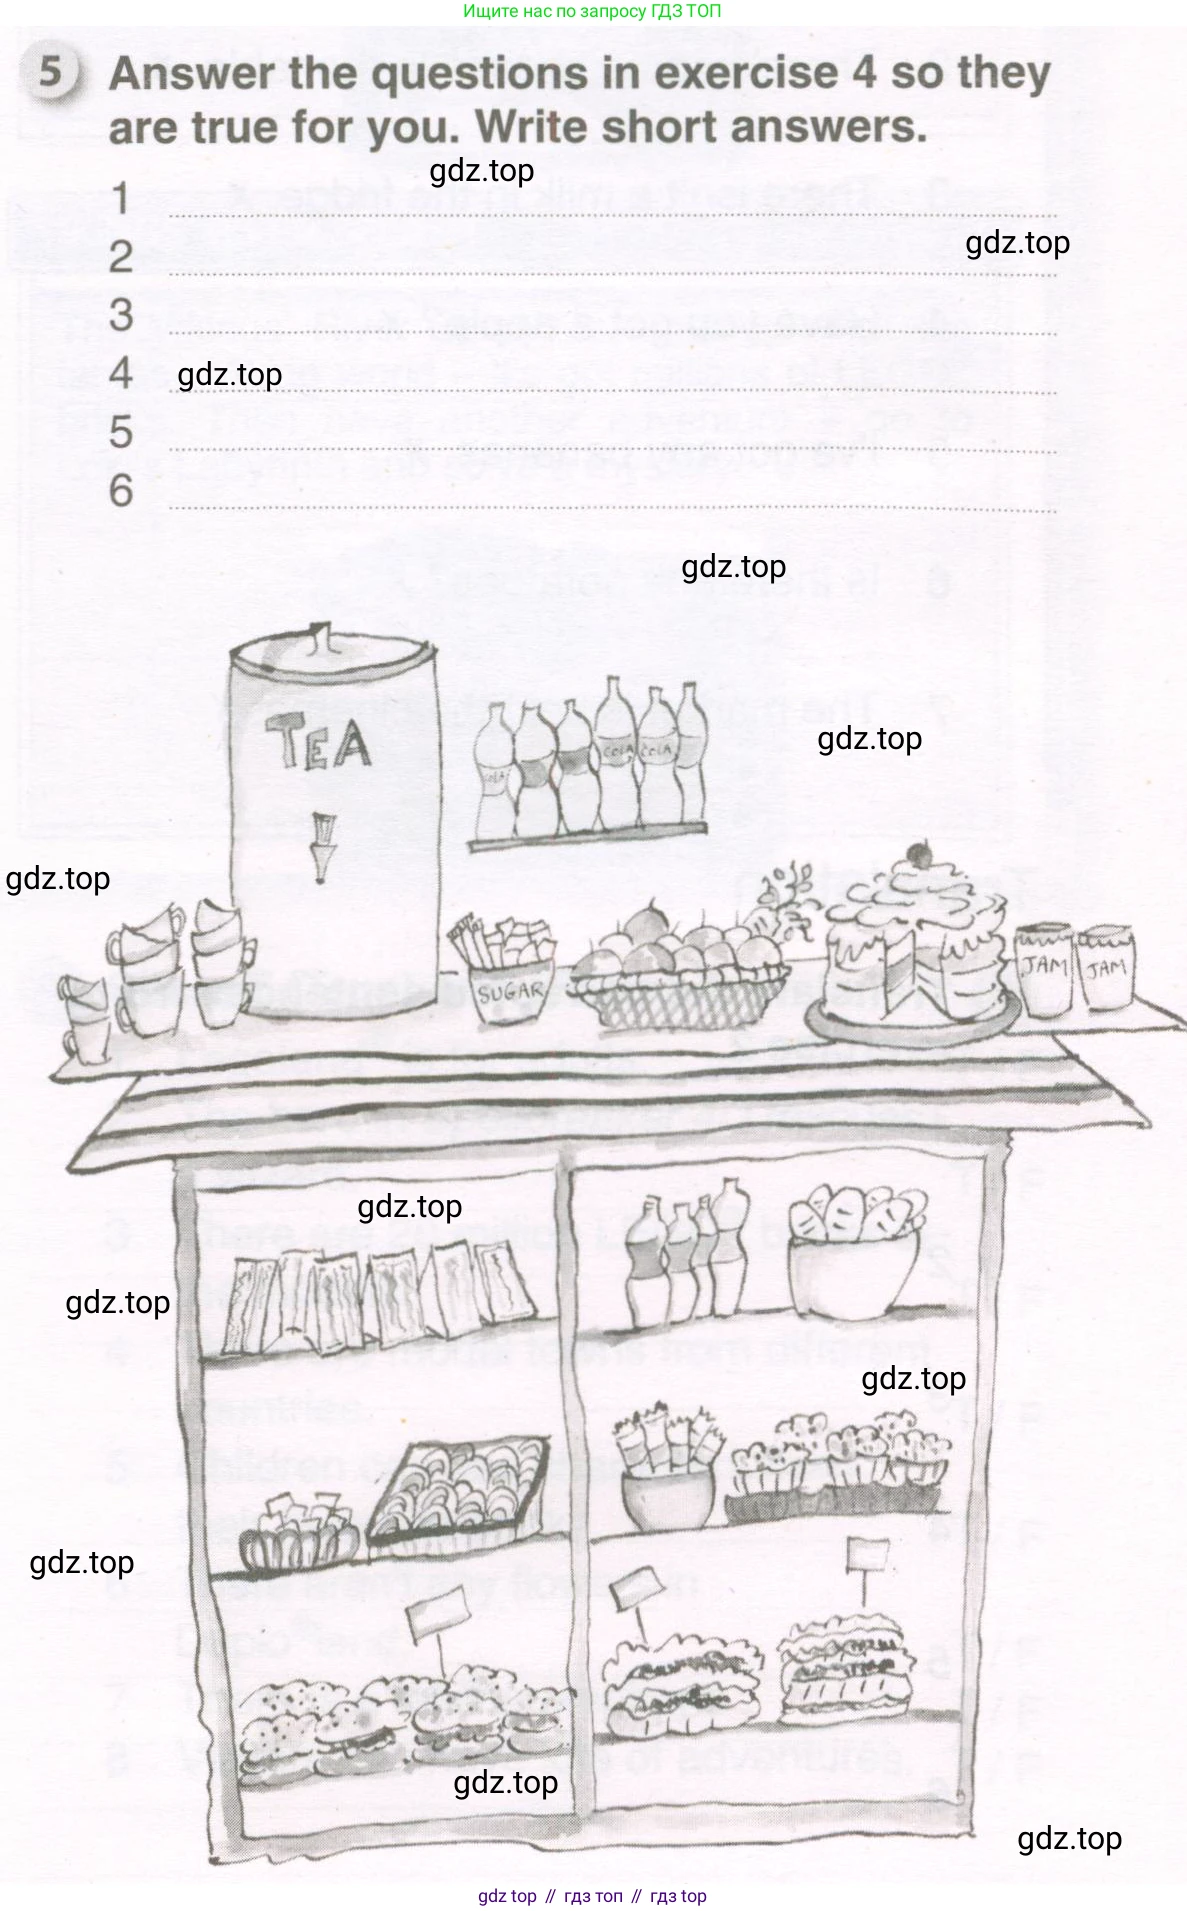 Ищите нас по запросу ГДЗ ТОП
5 Answer the questions in exercise 4 so they
are true for you. Write short answers.
gdz.top
1
gdz.top
2
3
gdz.top
4
5
6
gdz.top
TEA
gdz.top
COLA COLA
COLA
gdz.top
SUGAR
JAM JAM
gdz.top
gdz.top
gdz.top
gdz.top
gdz.top
gdz.top
gdz top // гдз топ // гдз top